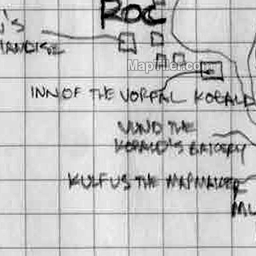 ROC
'S
HANDISE
MapUner.com
INN OF THE VORPAL KOBALD
VUND THE
KOBALD'S BAKERY
KULFUS THE MAPMAKER
MU